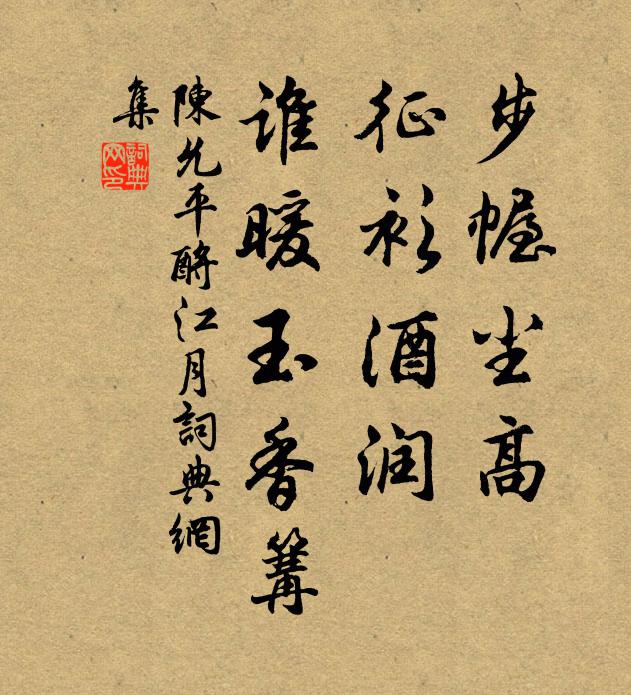 步幄尘高
征衫酒润
谁暖玉香篝
陳允平酹江月詞典網
集
詞典
网印